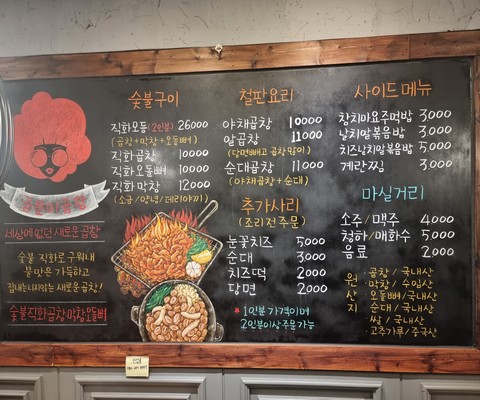 세상에 없던 새로운 곱창
숯불 직화로 구워내
불맛은 가득하고
잡내는 나지 않는 새로운 곱창!
숯불직화곱창 막창 오돌뼈
숯불구이
직화모듬 (2인분) 26000
(곱창+막창+오돌뼈)
직화곱창 10000
직화오돌뼈 10000
직화 막창 12000
(소금/양념/데리야끼)
철판요리
야채곱창 10000
알곱창 11000
(당면빼고 곱창많이)
순대곱창 11000
(야채곱창+순대)
추가사리
(조리전주문)
눈꽃치즈 5000
순대 3000
치즈떡 2000
당면 2000
* 1인분 가격이며
2인분이상 주문가능
사이드메뉴
참치마요주먹밥 3000
날치알볶음밥 3000
치즈날치알볶음밥 5000
계란찜 3000
마실거리
소주/맥주 4000
청하/매화수 5000
음료 2000
원산지
곱창/국내산
막창/수입산
오돌뼈/국내산
순대/국내산
쌀/국내산
고추가루/중국산